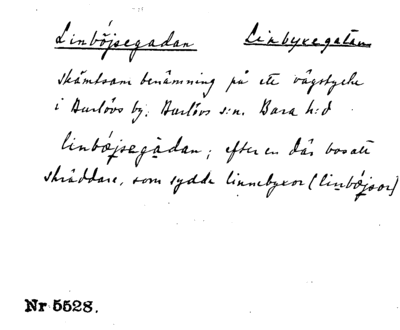 Linböjsegadan Linbyxegatan
skämtsam benämning på ett vägstycke
i Burlövs by. Burlövs s:n. Bara h:d
linböjsegädan; efter en där bosatt
skräddare, som sydde linnebyxor (linböjsor)
Nr 5528.